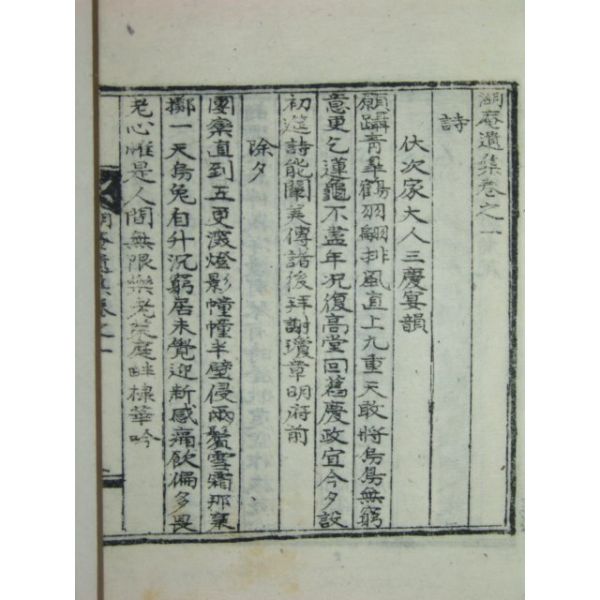 湖庵遺集卷之一
詩
伏次家大人三慶宴韻
願躡靑皐鶴羽翩排風直上九重天敢將烏鳥無窮
意更乞蓮龜不盡年况復高堂回舊慶政宜今夕設
初筵詩能闡美傳諸後拜謝瓊章明府前
除夕
團欒直到五更深燈影幢幢半壁侵兩鬢雪霜那棄
擲一天烏兔自升沉窮居未覺迎新感痛飮偏多畏
老心惟是人間無限樂老萊庭畔棣華吟
湖庵遺集卷之一